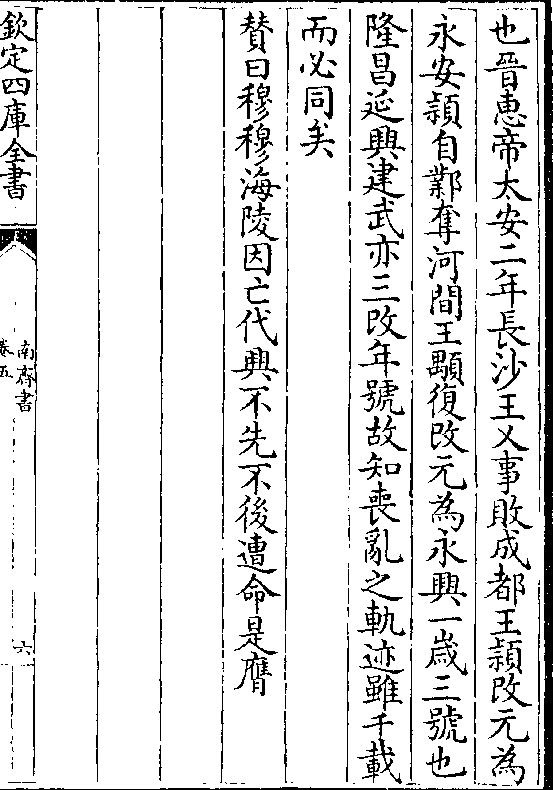 也晉惠帝太安二年長沙王乂事敗成都王頴改元為
永安頴自鄴奪河間王顒復改元為永興一嵗三號也
隆昌延興建武亦三改年號故知喪亂之軌迹雖千載
而必同矣
賛曰穆穆海陵因亡代興不先不後遭命是膺
欽定四庫全書
南齊書
卷五
六